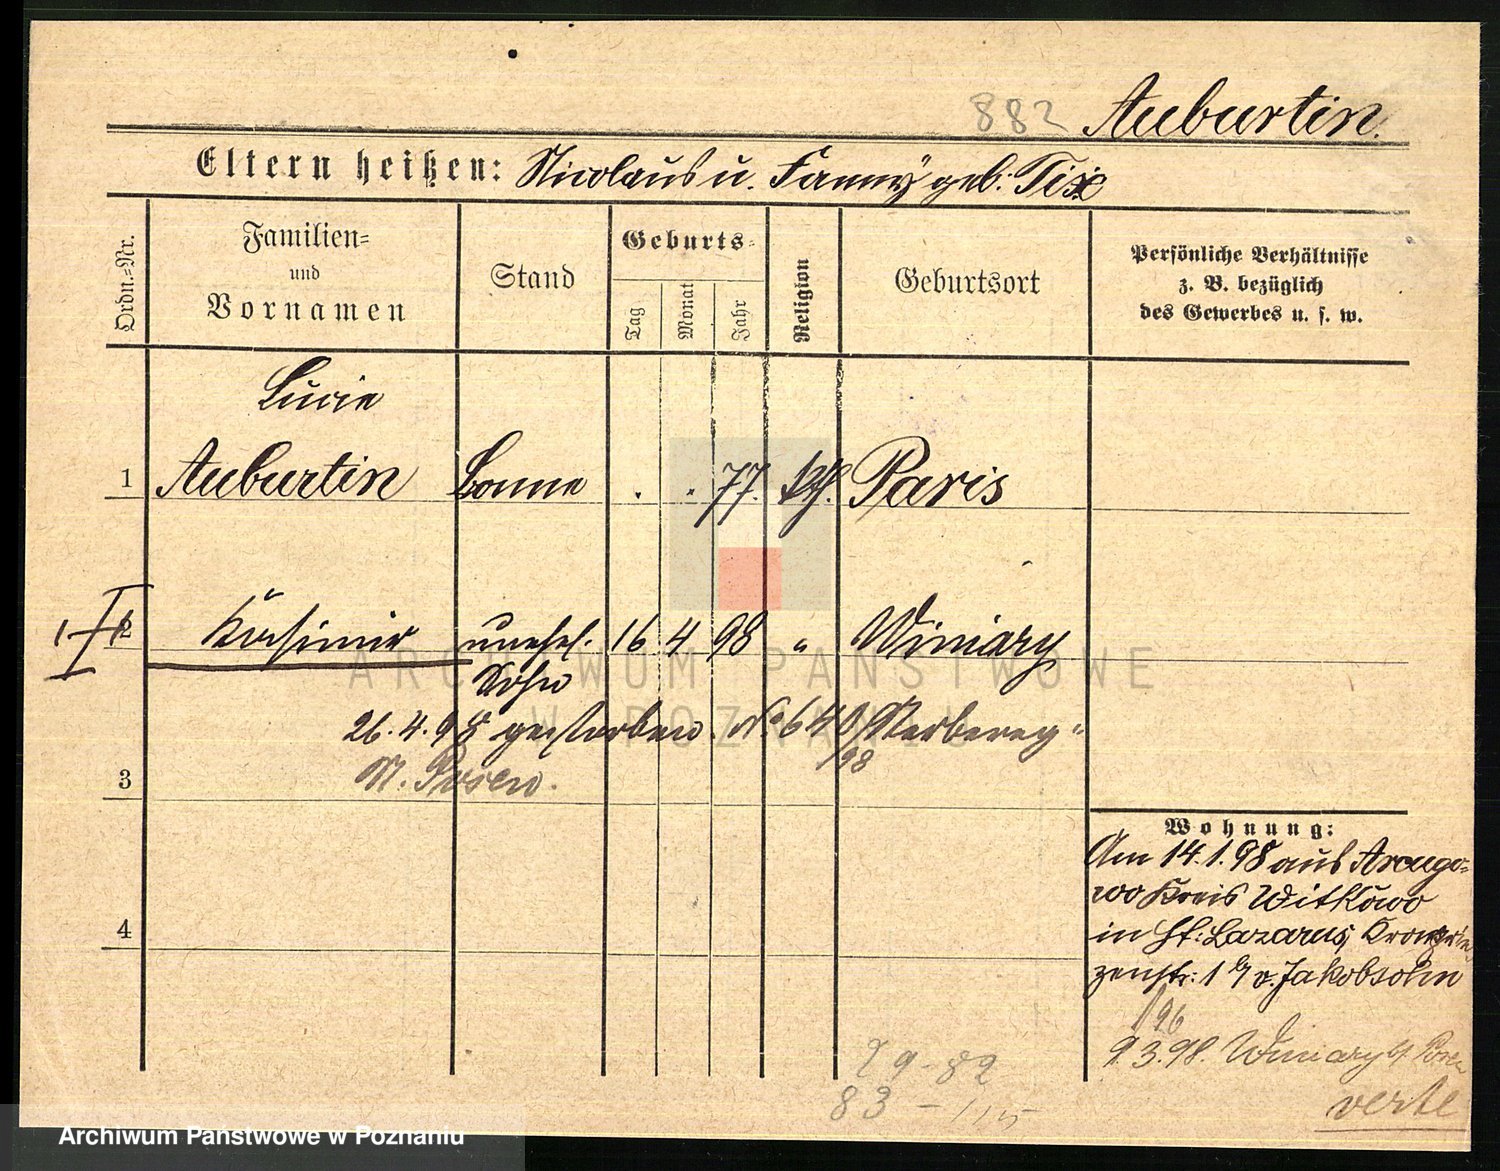 882 Auburtin.
Eltern heißen: Nicolaus u. Fanny geb. Tix
Ordn.=Nr.
Familien=
und
Vornamen
Stand
Geburts=
Tag
Monat
Jahr
Religion
Geburtsort
Persönliche Verhältnisse
z. B. bezüglich
des Gewerbes u. s. w.
Lucie
1 Auburtin Bonne . . 77. kth. Paris
2 Kasimir unehel. 16 4 98 " Winiary
Sohn
26.4.98 gestorben. No 640/98 Sterbereg.
St. Posen.
3
4
Wohnung:
Am 14.1.98 aus Arcugo=
wo Kreis Witkowo
in St. Lazarus, Kronprin
zenstr. 1 b/ v. Jakobsohn
9.3.98. Winiary b/ Posen
verte
79-82
83 - 115
ARCHIWUM PAŃSTWOWE
W POZNANIU
Archiwum Państwowe w Poznaniu